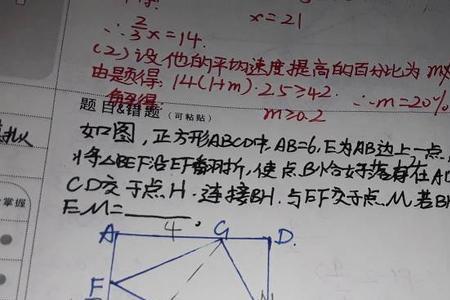 ∴ 2/3 x = 14.
x = 21
(2) 设他的平均速度提高的百分比为 m
由题得: 14(1+m)·2.5≥42. ∴m=20%
解得: m≥0.2
题目&错题 (可粘贴)
如图, 正方形ABCD中, AB=6, E为AB边上一点,
将△BEF沿EF翻折, 使点B恰好落在AD
CD交于点H. 连接BH. 与EF交于点M. 若BH
EM=______.
掌握
A 4 G D